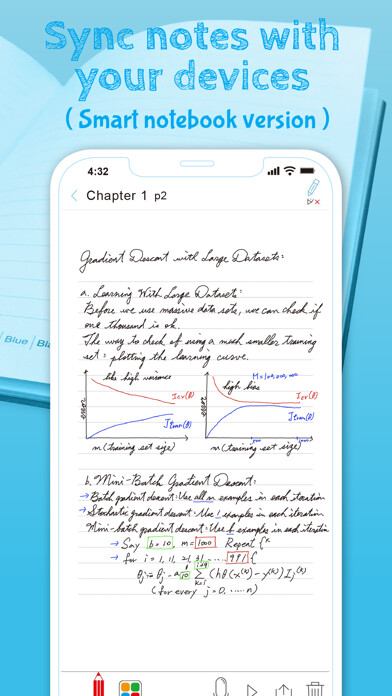 Sync notes with
your devices
( Smart notebook version )
4:32
Chapter 1 p2
Gradient Descent with Large Datasets:
a. Learning With Large Datasets:
Before we use massive data sets, we can check if
one thousand is ok.
The way to check of using a much smaller training
set: plotting the learning curve.
like high variance
error
Jcv(θ)
Jtrain(θ)
m (training set size)
high bias
M=100,000,000
error
Jcv(θ)
Jtrain(θ)
m (training set size)
Blue
b. Mini-Batch Gradient Descent:
→ Batch gradient descent: Use all m examples in each iteration
→ Stochastic gradient descent: Use 1 examples in each iteration
Mini-batch gradient descent: Use b examples in each iteration
→ Say b=10, m=1000 Repeat {
→ for i = 1, 11, 21, 31, ..... 991 {
(for every j=0, .....n)